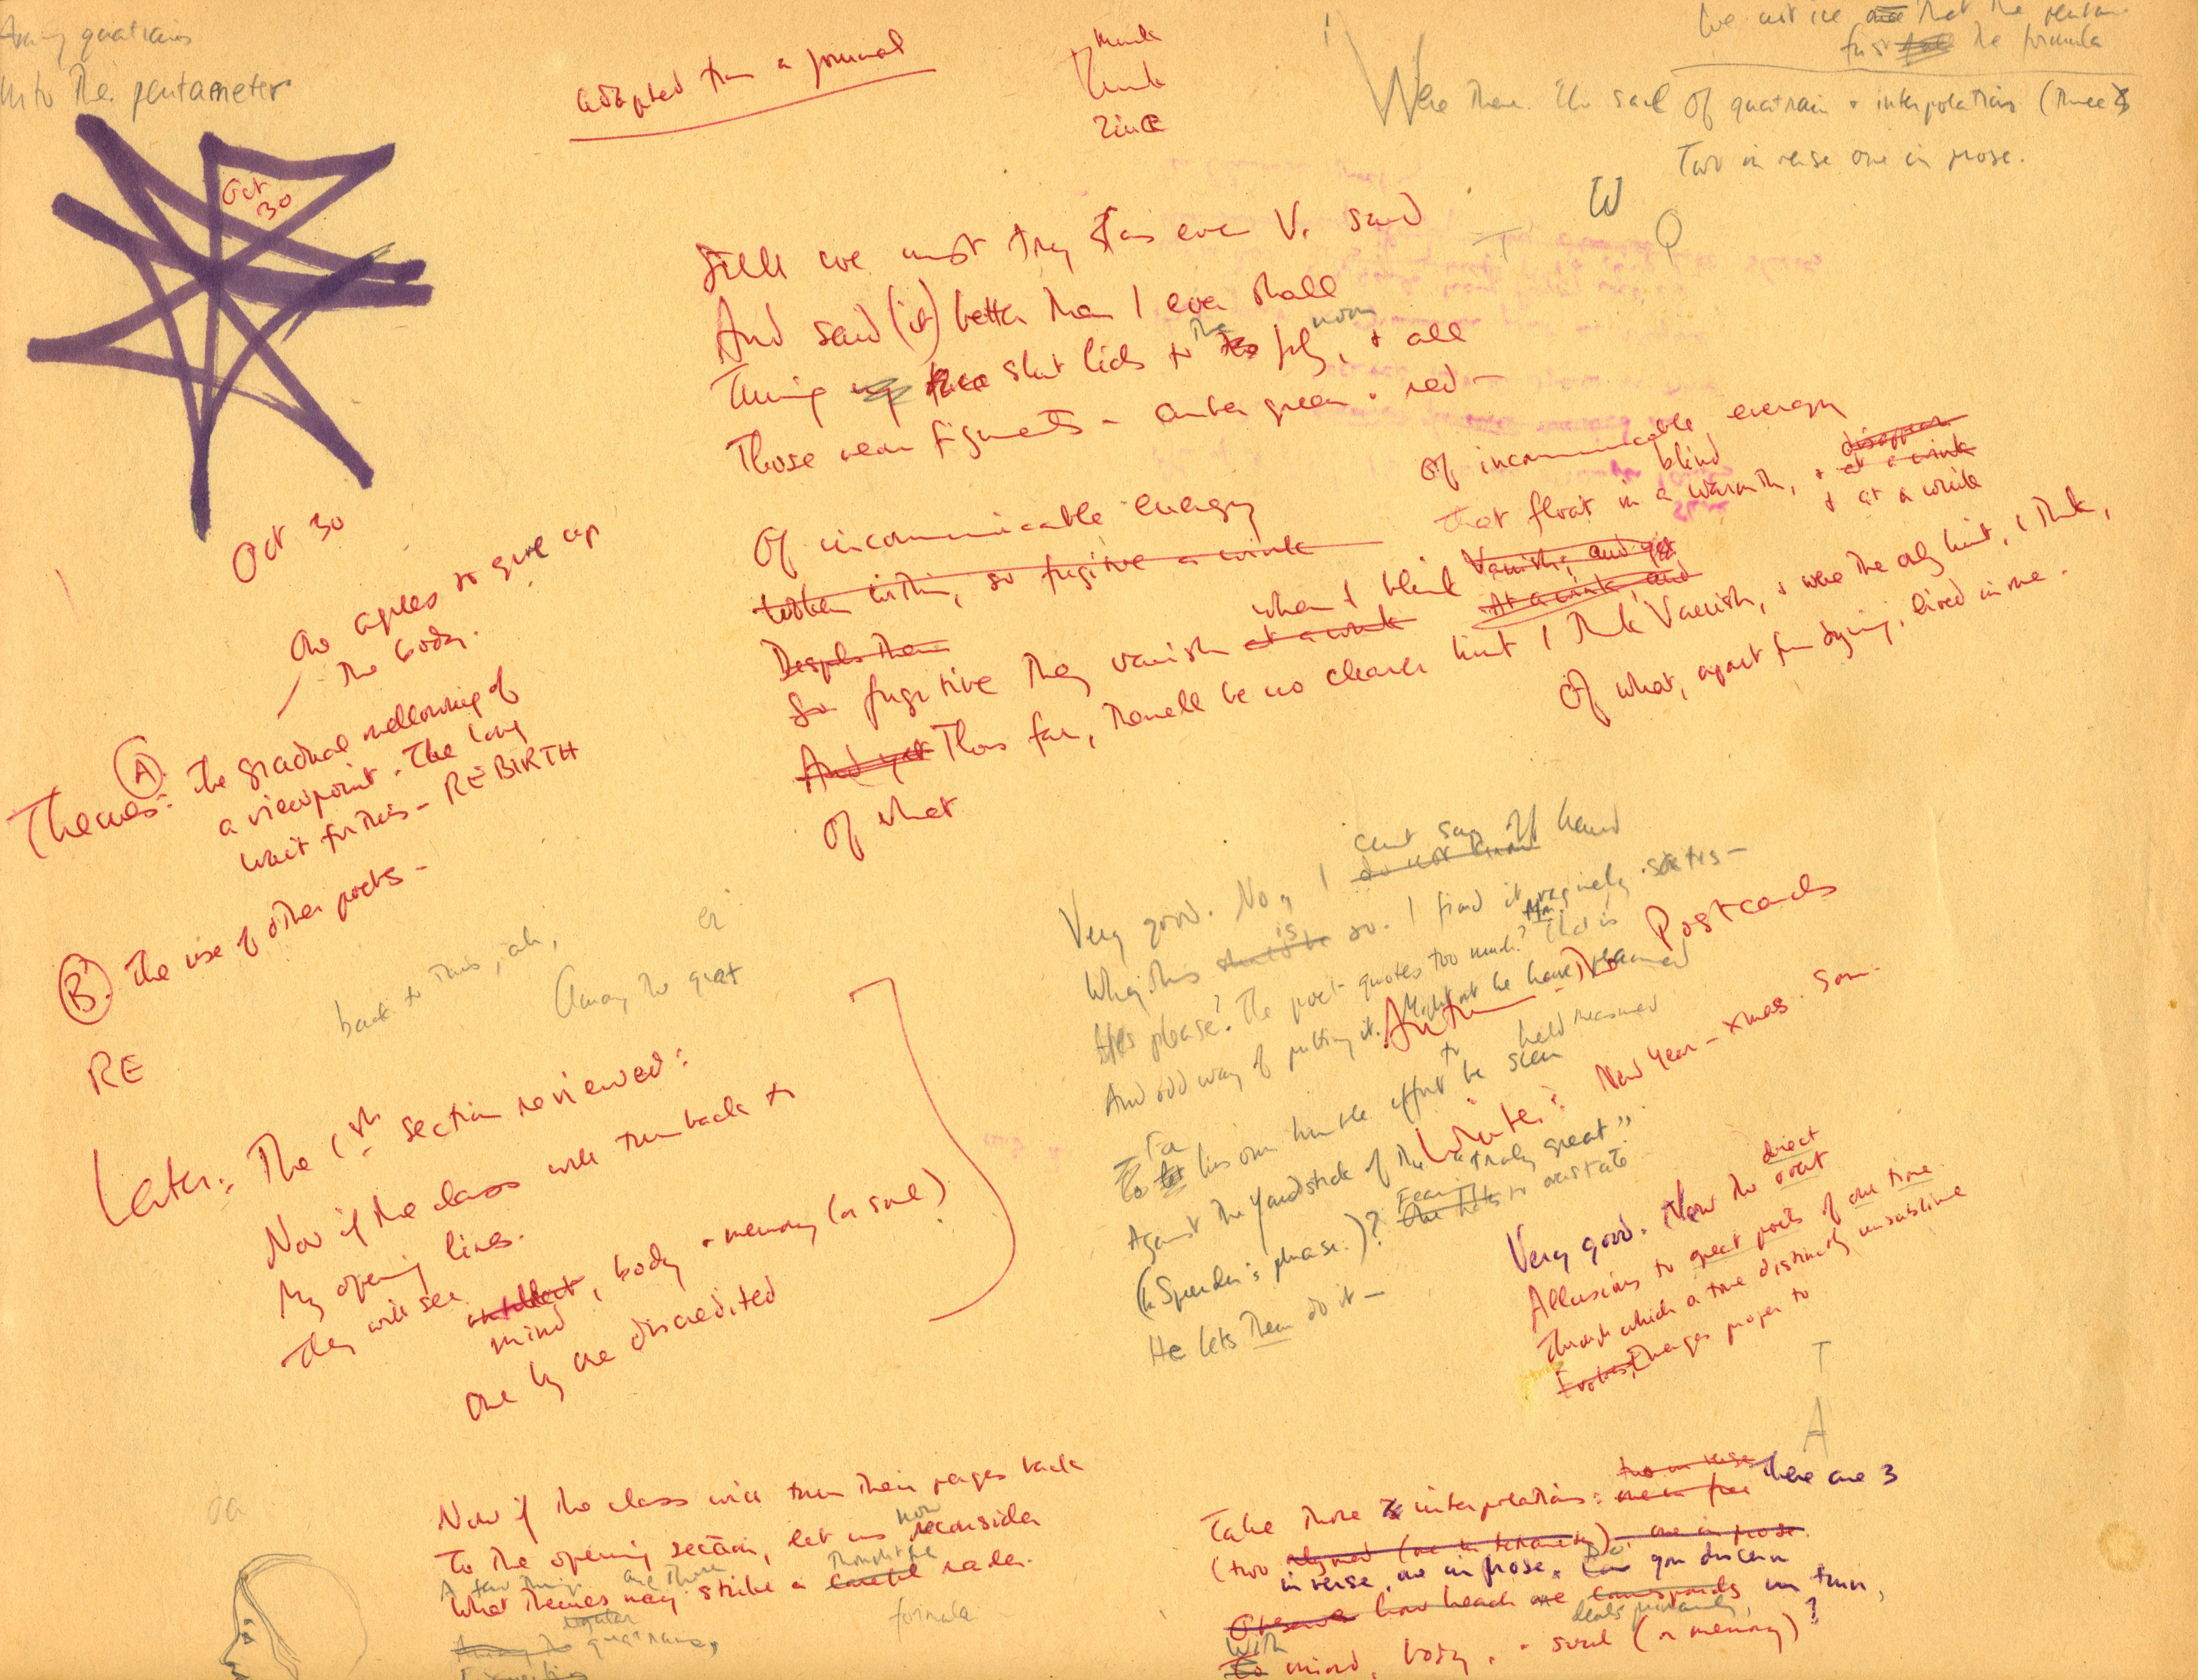 Among quatrains
Into the pentameter
adapted from a journal
think
Zinc
We notice that the pentam
the formula
Were there. The soul of quatrain & interpolations (three
Two in verse one in prose.
W
Q
Oct
30
Still we must try this even V. said
And said (it) better than I ever shall
Turning my shut lids to the now, & all
Those near figments – amber green & red –
Of incommunicable energy
Of incommunicable energy
That float in a blind warmth, & disappear
at a wink
& at a wink
so fugitive a wink
Vanish, and yet
At a wink, and
when I blink
Despite them
So fugitive they vanish at a wink
Vanish, & were the only hint, I think,
And yet Thus far, there'll be no clearer hint I think
Of what, apart from dying, lived in me.
Of what
Oct 30
One agrees to give up
the body.
Themes:
A. The gradual mellowing of
a viewpoint. The long
wait for this – REBIRTH
B. The use of other poets –
RE
back to this, ah,
er
Among the quat
Later: The 1st section reviewed:
Now if the class will turn back to
My opening lines.
They will see
intellect
mind, body & memory (or soul)
One by one discredited
can't say off hand
Very good. No, I do not know
Why this should be is so. I find it vaguely satis–
fies please? The poet quotes too much? Hm. That is
And odd way of putting it. Might he have planned
to held measured
For
his own humble effort be seen
Against the yardstick of the "truly great"
(In Spender's phrase.)? Fearing to overstate
He lets them do it –
Postcards
Autumn – The
Winter: New Year – Xmas. Som.
Very good. Now the direct overt
Allusions to great poets of one time
Through which a tone distinctly unsublime
Evokes, Images proper to
T
A
Now if the class will turn their pages back
To the opening section, let us now reconsider
A few things are there thought the
What themes may strike a careful reader.
regular
formula
quatrains,
Take those interpolations: two in verse there are 3
one in free
(two rhymed (one in tetrameter) one in prose.
in verse, one in prose. Do you discern
Observe how each one corresponds in turn,
deals primarily,
With
To mind, body, & soul (or memory)?